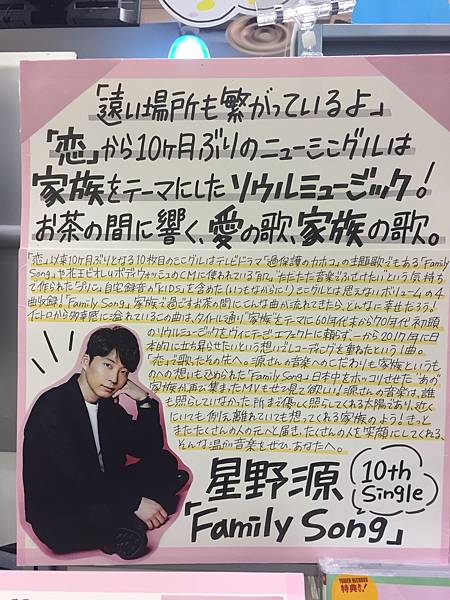 「遠い場所も繋がっているよ」
「恋」から10ヶ月ぶりのニューシングルは
家族をテーマにしたソウルミュージック!
お茶の間に響く、愛の歌、家族の歌。
「恋」以来10ヶ月ぶりとなる10枚目のシングルはテレビドラマ"過保護のカホコ"の主題歌でもある「Family
Song」や花王ビオレuボディウォッシュのCMに使われている「肌」、"ただただ音楽がしたい"という気持ち
で作られた「プリン」、自宅録音の「KIDS」を含めた(いつもながらに!)シングルとは思えないボリュームの4
曲収録!「Family Song」、家族で過ごすお茶の間にこんな曲が流れてきたら、どんなに幸せだろう。
イントロから多幸感に溢れているこの曲は、タイトル通り"家族"をテーマに60年代末から70年代初頭
のソウルミュージックをヴィンテージエフェクトに頼らず、一から2017年に日
本的に立ち昇らせたいという想いでレコーディングを重ねたという1曲。
「恋」で歌ったその先へ。源さんの音楽へのこだわりも家族というも
のへの想いも込められた「Family Song」。日本中をホッコリさせた"あの"
家族が再び集まったMVもぜひ見て欲しい!源さんの音楽は、誰
も照らしていなかった所まで優しく照らしてくれる太陽であり、近く
にいても、例え離れていても想ってくれる家族のよう!きっと
またたくさんの人の元へと届き、たくさんの人を笑顔にしてくれる、
そんな温かい音楽をぜひ、あなたへ。
星野源
10th
Single
「Family Song」
TOWER RECORDS
特典